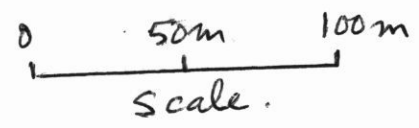 0 50m 100m
Scale.